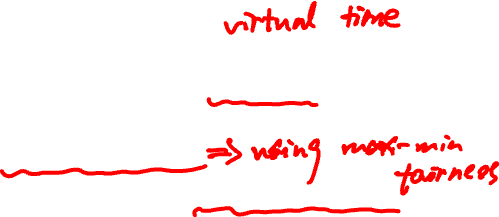 virtual time
⇒ using max-min
fairness